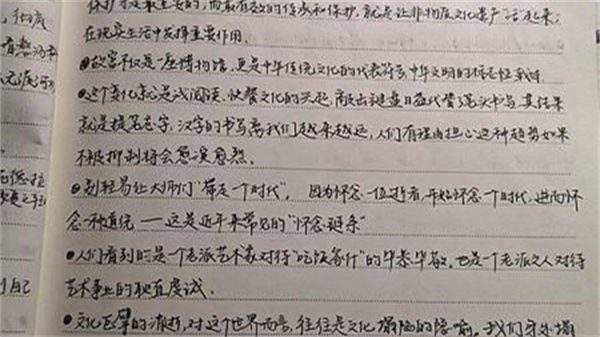 保护才是最重要的，而最有效的传承和保护，就是让非物质文化遗产"活"起来，
在现实生活中发挥重要作用。
●故宫不仅是一座博物馆，更是中华传统文化的代表符号，中华文明的标志性
●这个变化就是浅阅读、快餐文化的兴起，敲击键盘日益代替了笔头书写，其结果
就是提笔忘字，汉字的书写离我们越来越远，人们有理由担心这种趋势如果
不被抑制将会愈演愈烈。
●别轻易让大师们"带走一个时代"。因为怀念一位逝者，开始怀念一个时代，进而怀
念一种道统——这是近年来常见的"怀念链条"
●人们看到的是一个老派艺术家对待"吃饭家什"的毕恭毕敬，也是一个老派文人对待
艺术事业的耿直虔诚。
●文化巨擘的消逝，对这个世界而言，往往是文化塌陷的隐喻。我们